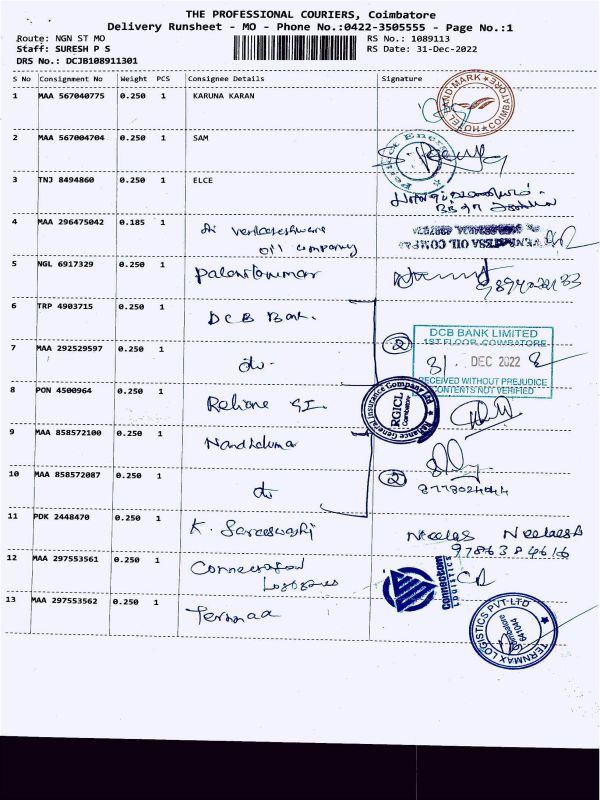 THE PROFESSIONAL COURIERS, Coimbatore
Delivery Runsheet - MO - Phone No.:0422-3505555 - Page No.:1
Route: NGN ST MO
RS No.: 1089113
Staff: SURESH P S
RS Date: 31-Dec-2022
DRS No.: DCJB108911301
S No Consignment No Weight PCS Consignee Details Signature
1 MAA 567040775 0.250 1 KARUNA KARAN
HOTEL LAND MARK COIMBATORE
2 MAA 567004704 0.250 1 SAM
3 TNJ 8494860 0.250 1 ELCE
4 MAA 296475042 0.185 1 Sri Venkateshwara
oil company
OIL COMPANY
5 NGL 6917329 0.250 1 Palanikumar
6 TRP 4903715 0.250 1 DCB Bank.
DCB BANK LIMITED
1ST FLOOR, COIMBATORE
7 MAA 292529597 0.250 1 do
2
31 DEC 2022
RECEIVED WITHOUT PREJUDICE
CONTENTS NOT VERIFIED
8 PON 4500964 0.250 1 Reliance GI.
Reliance General Insurance Company Ltd
RGICL
Coimbatore
9 MAA 858572100 0.250 1 Nandhakumar
10 MAA 858572087 0.250 1 do
2
8778024044
11 PDK 2448470 0.250 1 K. Saraswathi
9786384616
12 MAA 297553561 0.250 1 Connectcom
Logistics
Connectcom
LOGISTICS
13 MAA 297553562 0.250 1 Ternmax
TERNMAX LOGISTICS PVT-LTD
Coimbatore
641044